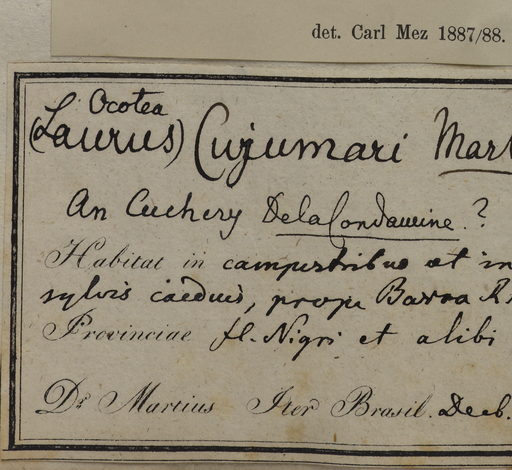 det. Carl Mez 1887/88.
Ocotea
(Laurus) Cujumari Mart
An Cuchery DelaCondamine.?
Habitat in campestribus et in
sylvis caeduis, prope Barra R
Provinciae fl. Nigri et alibi
Dr. Martius Iter Brasil. Decb.